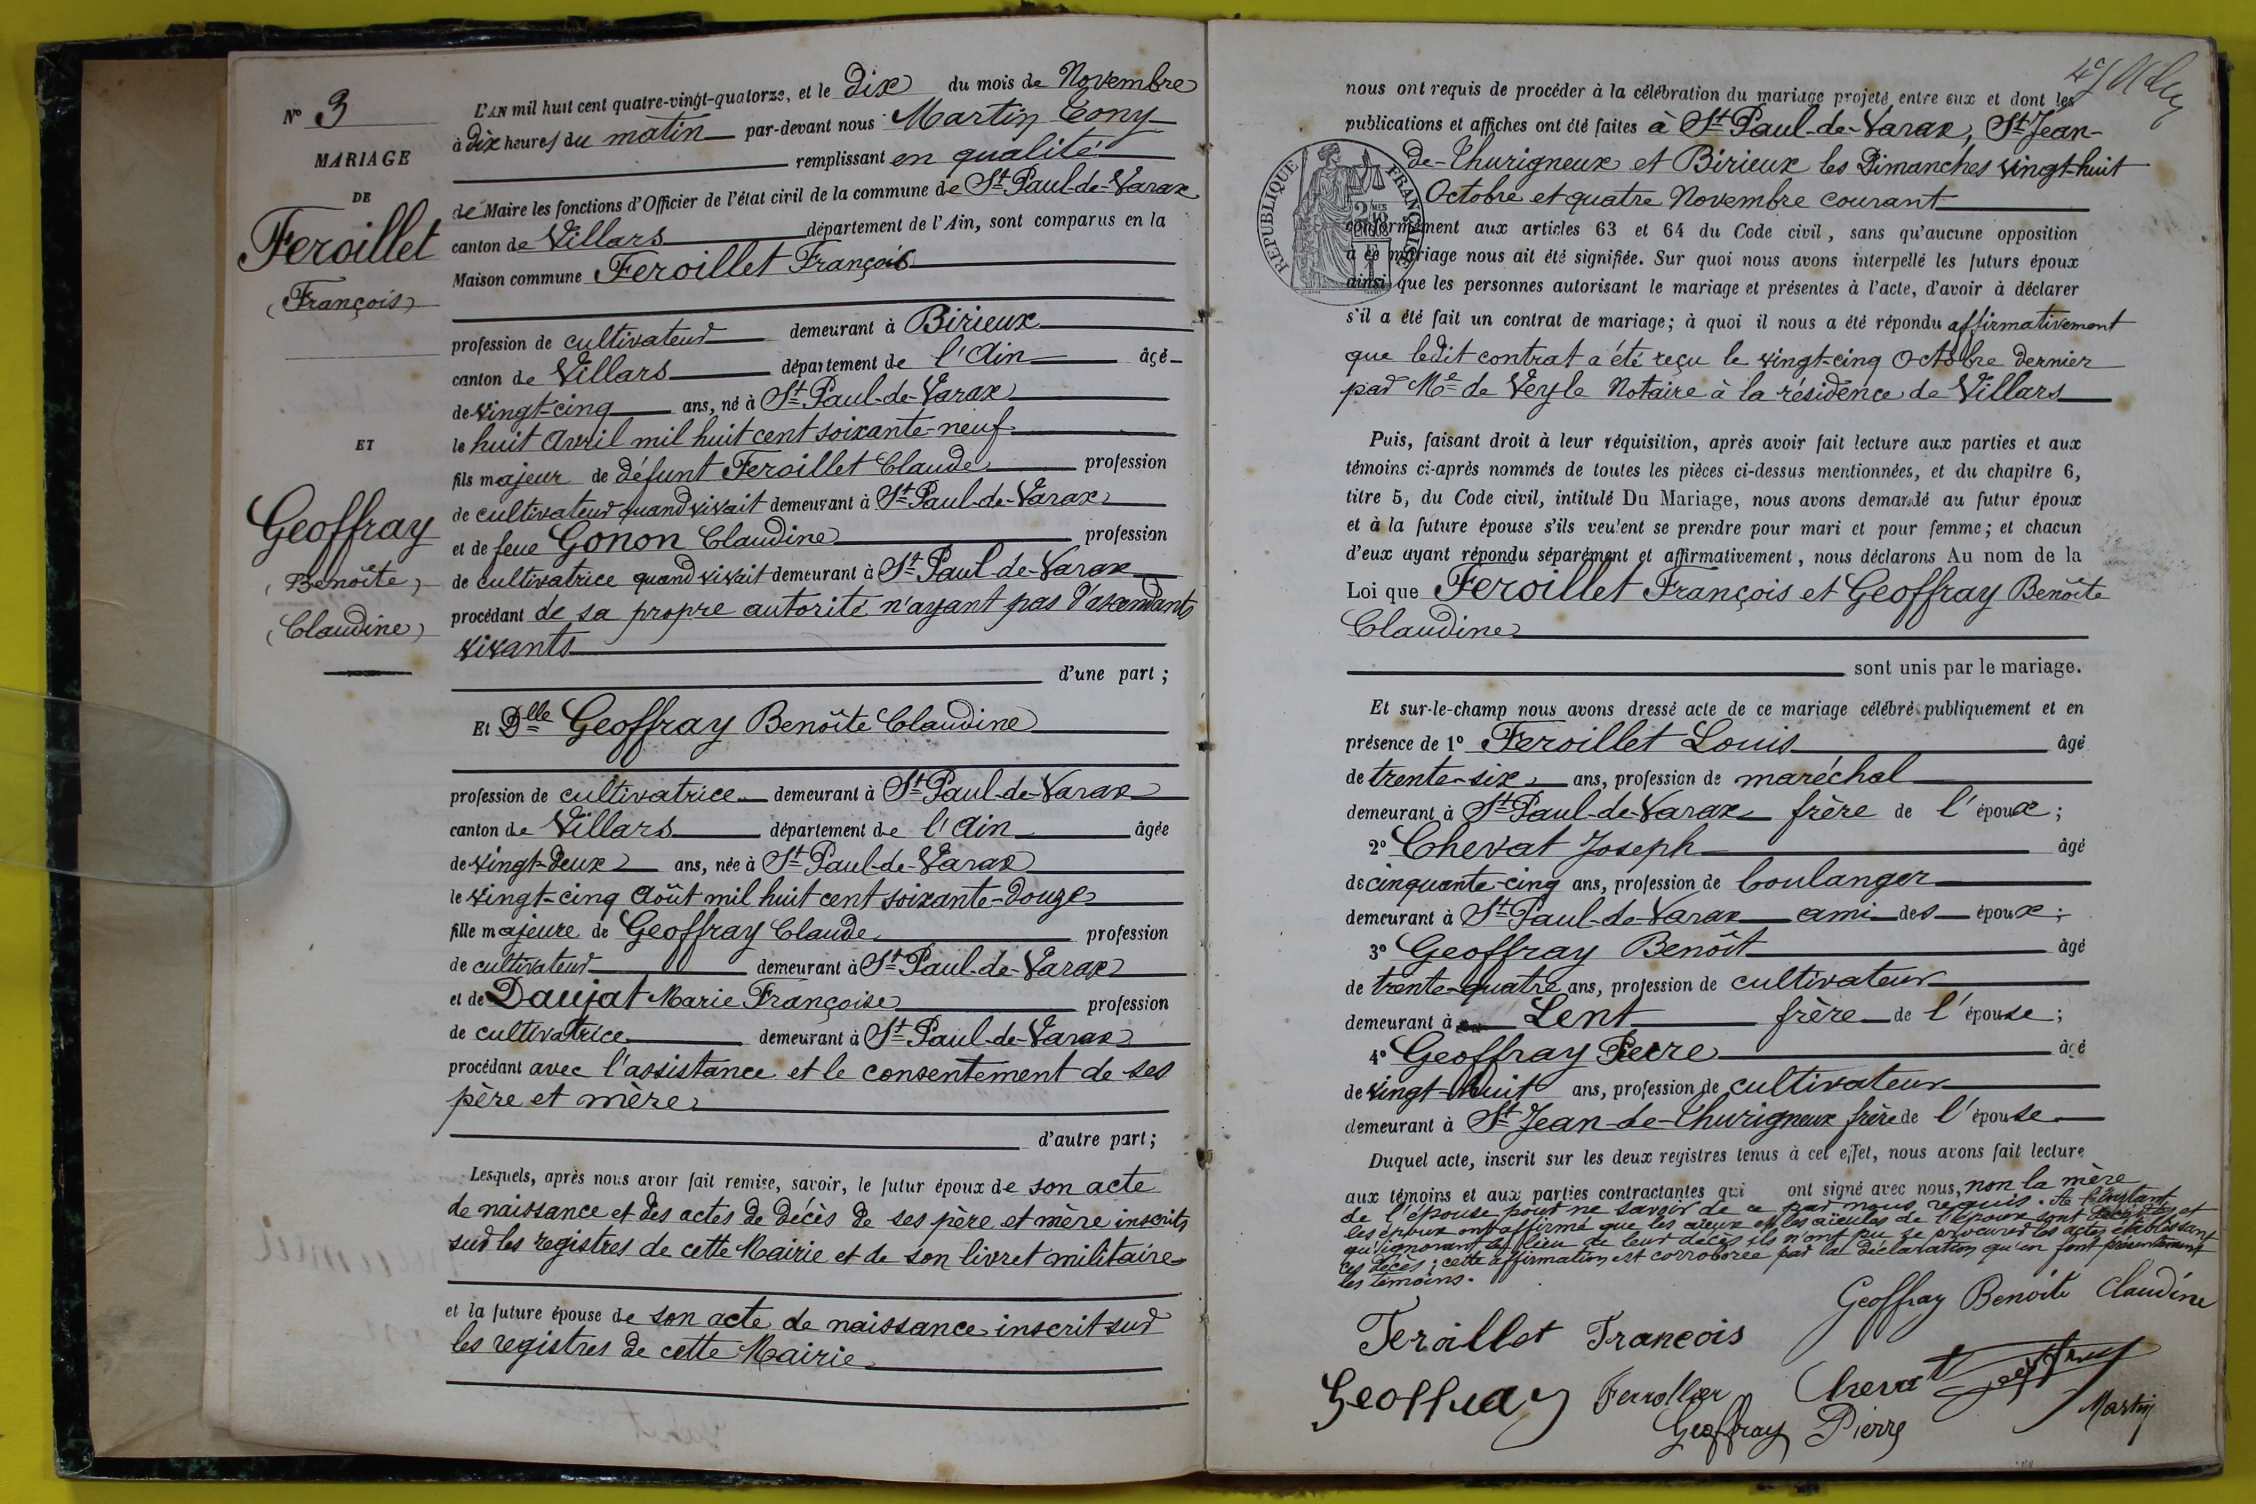 N° 3
MARIAGE
DE
Feroillet
(François)
ET
Geoffray
(Benoîte)
(Claudine)
L'AN mil huit cent quatre-vingt-quatorze, et le dix du mois de Novembre
à dix heures du matin par-devant nous Martin Tony
remplissant en qualité
de Maire les fonctions d'Officier de l'état civil de la commune de St Paul-de-Varax
canton de Villars département de l'Ain, sont comparus en la
Maison commune Feroillet François
profession de cultivateur demeurant à Birieux
canton de Villars département de l'Ain âgé
de vingt-cinq ans, né à St Paul-de-Varax
le huit Avril mil huit cent soixante-neuf
fils majeur de défunt Feroillet Claude profession
de cultivateur quand vivait demeurant à St Paul-de-Varax
et de feue Gonon Claudine profession
de cultivatrice quand vivait demeurant à St Paul-de-Varax
procédant de sa propre autorité n'ayant pas d'ascendants
vivants
d'une part ;
Et Dlle Geoffray Benoîte Claudine
profession de cultivatrice demeurant à St Paul-de-Varax
canton de Villars département de l'Ain âgée
de vingt-deux ans, née à St Paul-de-Varax
le vingt-cinq Août mil huit cent soixante-douze
fille majeure de Geoffray Claude profession
de cultivateur demeurant à St Paul-de-Varax
et de Daujat Marie Françoise profession
de cultivatrice demeurant à St Paul-de-Varax
procédant avec l'assistance et le consentement de ses
père et mère
d'autre part ;
Lesquels, après nous avoir fait remise, savoir, le futur époux de son acte
de naissance et des actes de décès de ses père et mère inscrits
sur les registres de cette Mairie et de son livret militaire
et la future épouse de son acte de naissance inscrit sur
les registres de cette Mairie
nous ont requis de procéder à la célébration du mariage projeté entre eux et dont les
publications et affiches ont été faites à St Paul-de-Varax, St Jean-
de-Thurigneux et Birieux les Dimanches vingt-huit
Octobre et quatre Novembre courant
REPUBLIQUE FRANÇAISE
conformément aux articles 63 et 64 du Code civil, sans qu'aucune opposition
à ce mariage nous ait été signifiée. Sur quoi nous avons interpellé les futurs époux
ainsi que les personnes autorisant le mariage et présentes à l'acte, d'avoir à déclarer
s'il a été fait un contrat de mariage; à quoi il nous a été répondu affirmativement
que ledit contrat a été reçu le vingt-cinq Octobre dernier
par Me de Veyle Notaire à la résidence de Villars
Puis, faisant droit à leur réquisition, après avoir fait lecture aux parties et aux
témoins ci-après nommés de toutes les pièces ci-dessus mentionnées, et du chapitre 6,
titre 5, du Code civil, intitulé Du Mariage, nous avons demandé au futur époux
et à la future épouse s'ils veulent se prendre pour mari et pour femme; et chacun
d'eux ayant répondu séparément et affirmativement, nous déclarons Au nom de la
Loi que Feroillet François et Geoffray Benoîte
Claudine
sont unis par le mariage.
Et sur-le-champ nous avons dressé acte de ce mariage célébré publiquement et en
présence de 1° Feroillet Louis âgé
de trente-six ans, profession de maréchal
demeurant à St Paul-de-Varax frère de l'époux ;
2° Chevat Joseph âgé
de cinquante-cinq ans, profession de boulanger
demeurant à St Paul-de-Varax ami des époux ;
3° Geoffray Benoît âgé
de trente-quatre ans, profession de cultivateur
demeurant à Lent frère de l'épouse ;
4° Geoffray Pierre âgé
de vingt-huit ans, profession de cultivateur
demeurant à St Jean-de-Thurigneux frère de l'épouse
Duquel acte, inscrit sur les deux registres tenus à cet effet, nous avons fait lecture
aux témoins et aux parties contractantes qui ont signé avec nous, non la mère
de l'épouse pour ne savoir de ce par nous requis. A l'instant
les époux ont affirmé que les aïeux et les aïeules de l'époux sont décédés et
qu'ignorant le lieu de leur décès ils n'ont pu se procurer les actes établissant
ces décès ; cette affirmation est corroborée par la déclaration qu'en font présentement
les témoins.
Geoffray Benoite Claudine
Feroillet François
Geoffray Ferrollier Chevat Geoffray
Geoffray Pierre Martin